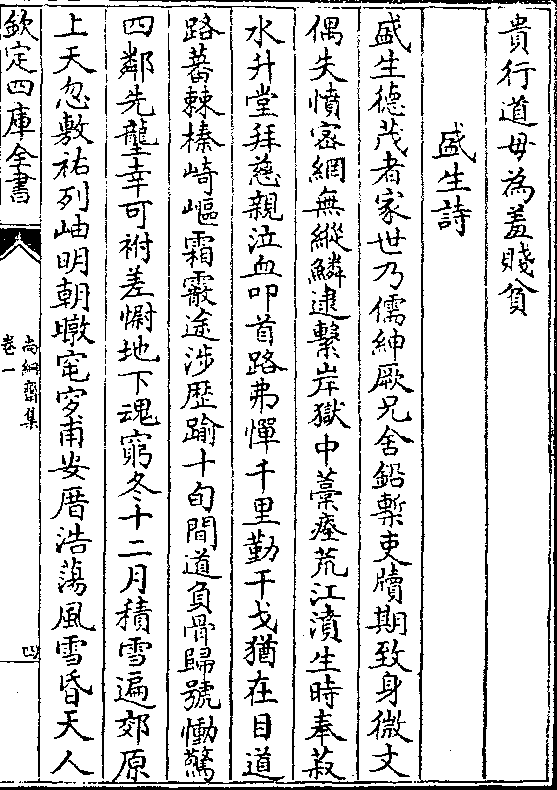 貴行道毋為羞賤貧
盛生詩
盛生德茂者家世乃儒紳厥兄舍鉛槧吏牘期致身微文
偶失憤密網無縱鱗逮繫岸獄中藁瘞荒江濆生時奉菽
水升堂拜慈親泣血叩首路弗憚千里勤干戈猶在目道
路蕃棘榛崎嶇霜霰途涉歷踰十旬間道負骨歸號慟驚
四鄰先壟幸可祔差慰地下魂窮冬十二月積雪遍郊原
上天忽敷祐列岫明朝暾窀穸甫安厝浩蕩風雪昏天人
欽定四庫全書
尚絅齋集
卷一
四